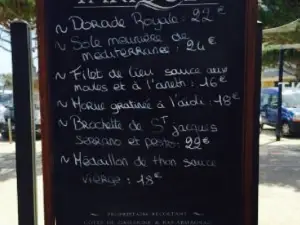 ~ Dorade Royale : 22 €
~ Sole meunière de
méditerranée : 24 €
~ Filet de lieu sauce aux
moules et à l'aneth : 16 €
~ Morue gratinée à l'aïoli : 18 €
~ Brochette de ST jacques
serrano et pesto : 22€
~ Médaillon de thon sauce
vierge : 18 €